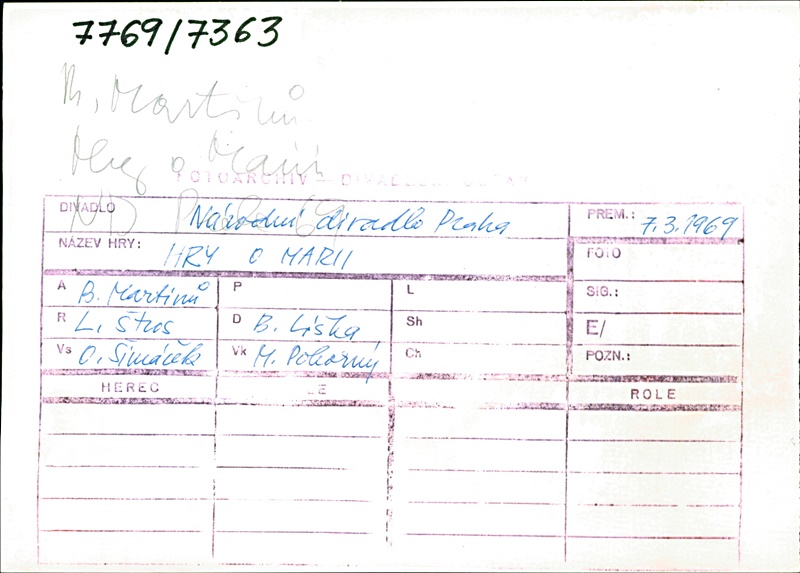 7769/7363
B. Martinů
Hry o Marii
FOTOARCHIV – DIVADELNÍ ÚSTAV
ND Praha
DIVADLO Národní divadlo Praha PREM.: 7.3.1969
NÁZEV HRY: HRY O MARII FOTO
A B. Martinů P L SIG.:
R L. Štros D B. Liška Sh E/
Vs O. Šimáček Vk M. Pokorný Ch POZN.:
HEREC LE ROLE